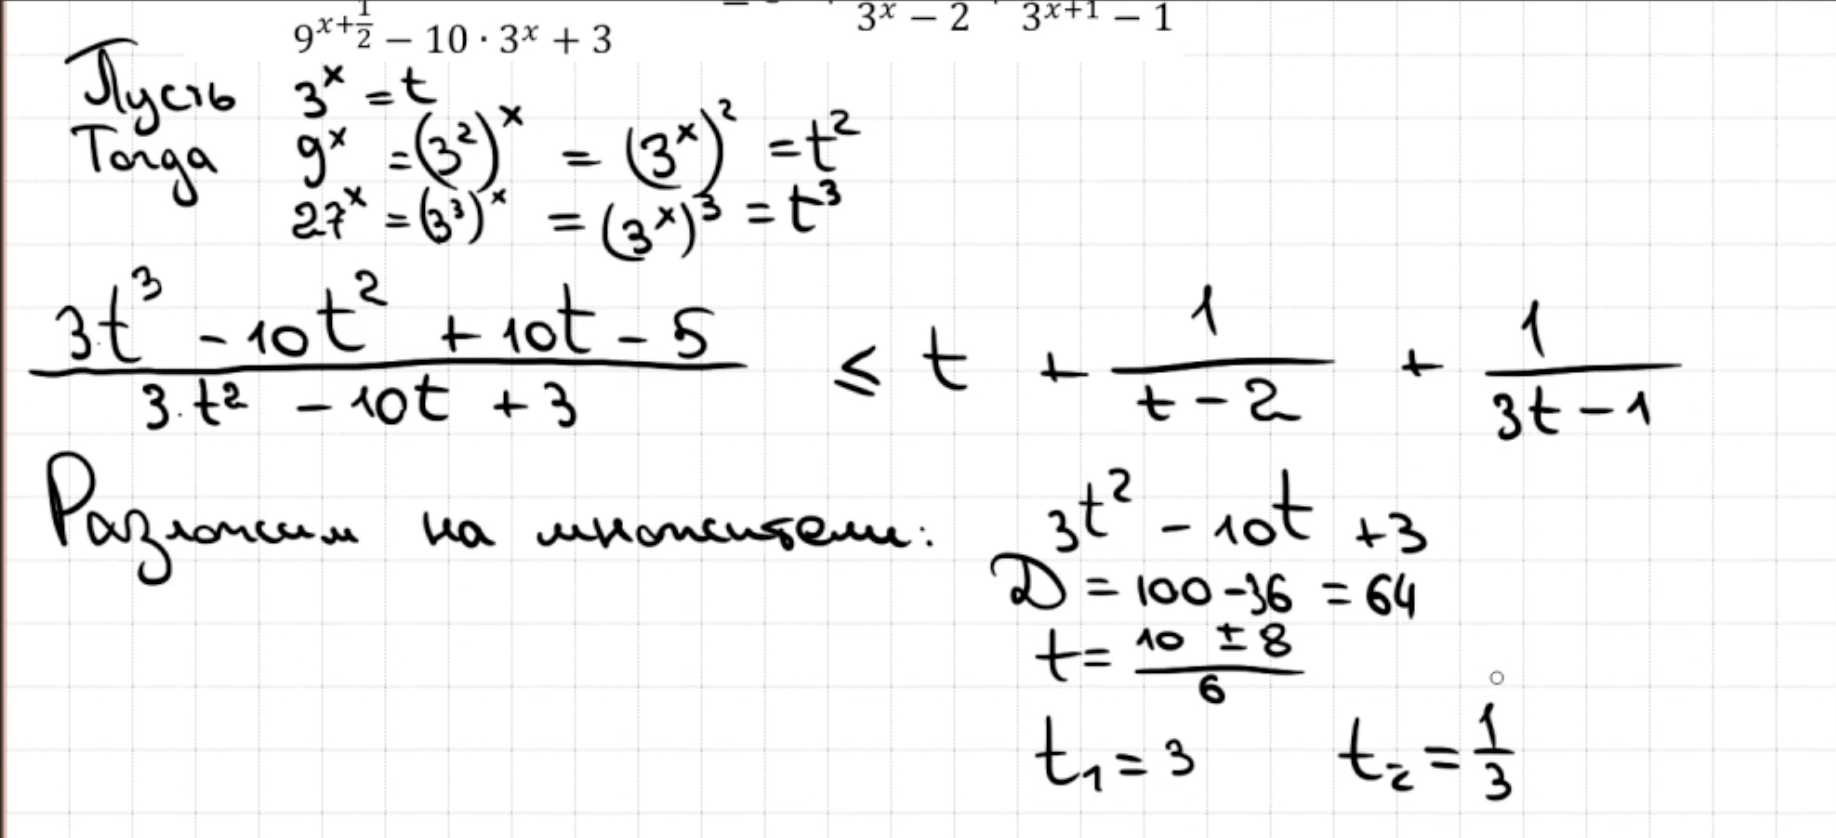 9^{x+\frac{1}{2}} − 10 · 3^x + 3
3^x − 2   3^{x+1} − 1
Пусть 3^x = t
Тогда 9^x = (3^2)^x = (3^x)^2 = t^2
27^x = (3^3)^x = (3^x)^3 = t^3
\frac{3t^3 - 10t^2 + 10t - 5}{3 \cdot t^2 - 10t + 3} ≤ t + \frac{1}{t-2} + \frac{1}{3t-1}
Разложим на множители: 3t^2 - 10t + 3
D = 100 - 36 = 64
t = \frac{10 ± 8}{6}
t_1 = 3   t_2 = \frac{1}{3}